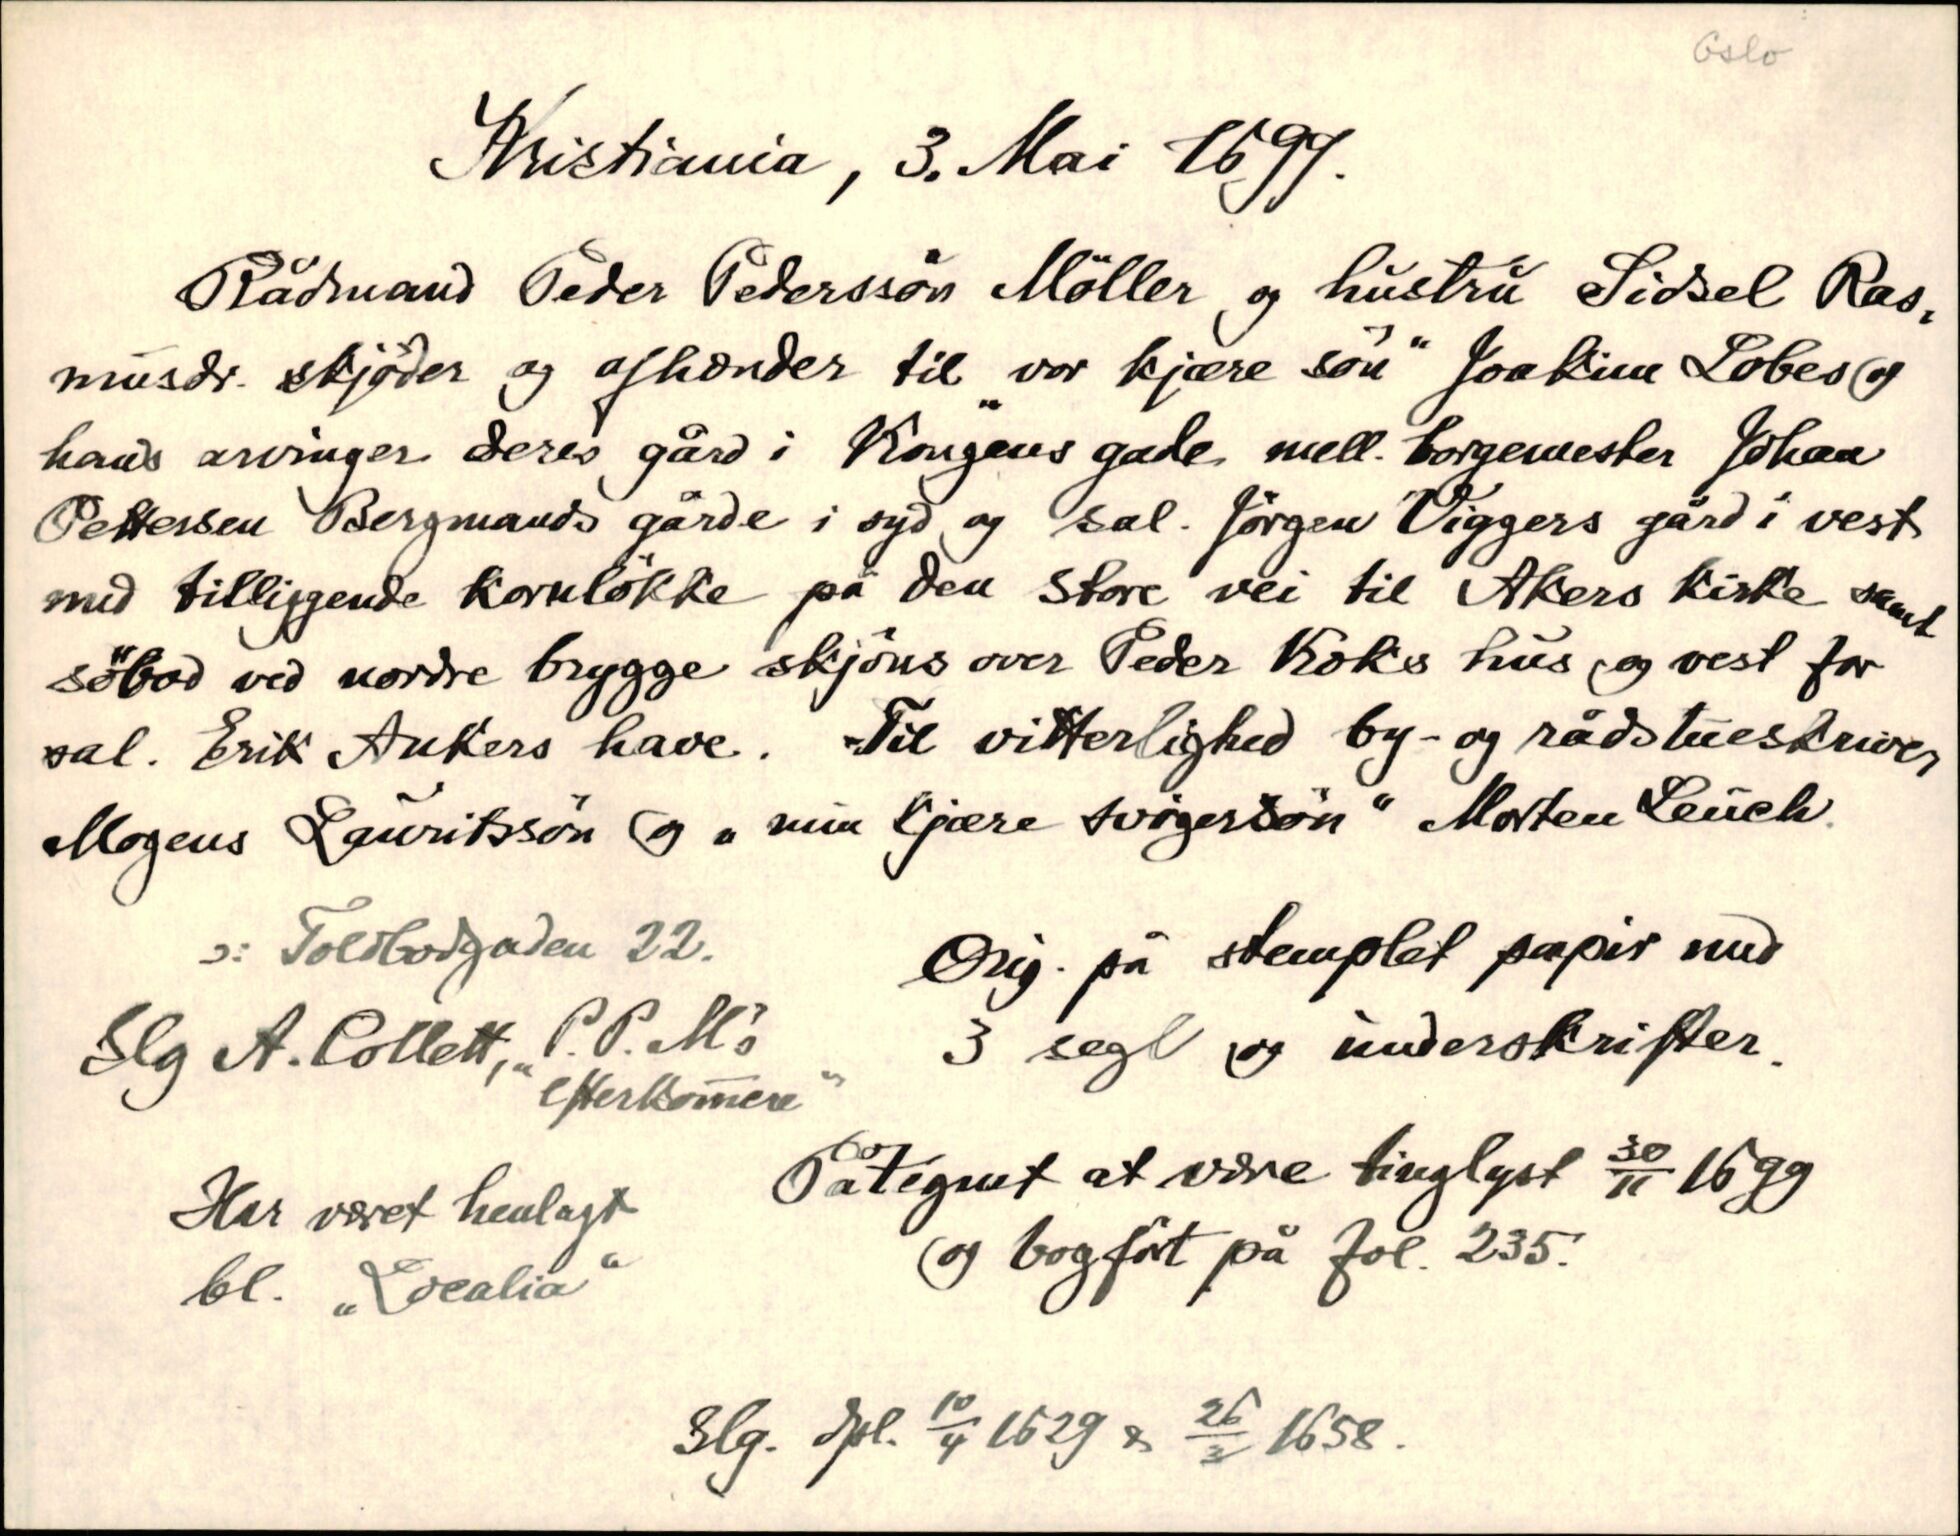 Oslo
Kristiania, 3. Mai 1699.
Rådmand Peder Pederssön Möller og hustru Sidsel Ras-
musdr. skjöder og afhænder til „vor kjære sön“ Joakim Lobes og
hans arvinger deres gård i Kongens gade mell. borgemester Johan
Pettersen Bergmands gårde i syd og sal. Jörgen Viggers gård i vest
med tilliggende kornlökke på den store vei til Akers kirke samt
söbod ved nordre brygge skjöns over Peder Koks hus og vest for
sal. Erik Ankers have. Til vitterlighed by- og rådstueskriver
Mogens Lauritssön og „min kjære svigersön“ Morten Leuch.
ɔ: Toldbodgaden 22.
Slg A. Collett, „P. P. M's
efterkommere“
Orig. på stemplet papir med
3 segl og underskrifter.
Har været henlagt
bl. „Localia“
Påtegnet at være tinglyst 30/11 1699
og bogfört på fol. 235.
Slg. dpl. 10/4 1629 & 26/3 1658.